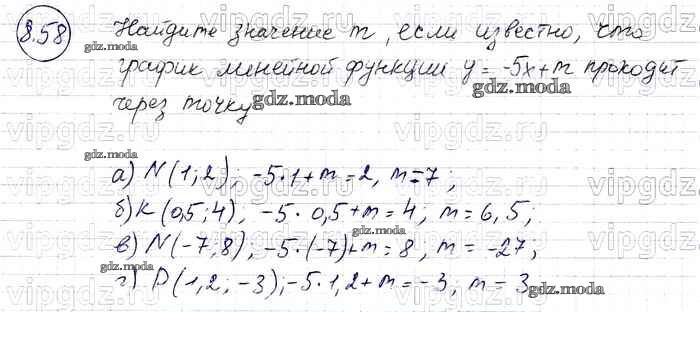 8.58 Найдите значение m, если известно, что
график линейной функции y = -5x+m проходит
через точку
а) N(1;2); -5·1+m=2, m=7;
б) K(0,5;4), -5·0,5+m=4; m=6,5;
в) N(-7;8); -5·(-7)+m=8, m=-27;
г) P(1,2;-3);-5·1,2+m=-3, m=3
gdz.moda
gdz.moda
gdz.moda
gdz.moda
gdz.moda
gdz.moda
gdz.moda
gdz.moda
gdz.moda
vipgdz.ru